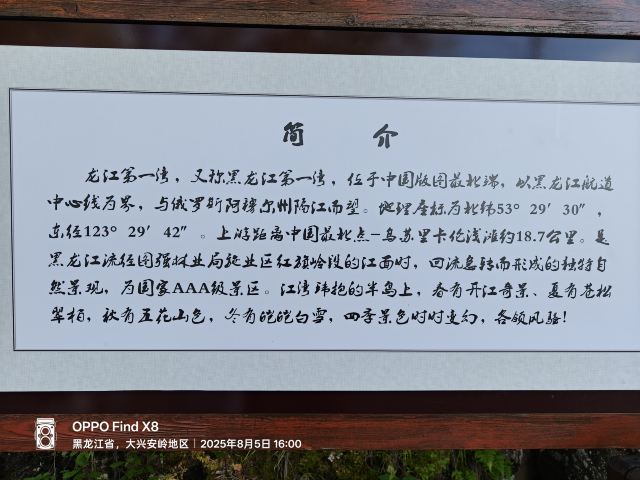 简 介
龙江第一湾，又称黑龙江第一湾，位于中国版图最北端，以黑龙江航道
中心线为界，与俄罗斯阿穆尔州隔江而望。地理座标为北纬53° 29′ 30″，
东经123° 29′ 42″。上游距离中国最北点-乌苏里卡伦浅滩约18.7公里。是
黑龙江流经图强林业局施业区红旗岭段的江面时，回流急转而形成的独特自
然景观，为国家AAA级景区。江湾环抱的半岛上，春有开江奇景、夏有苍松
翠柏，秋有五花山色，冬有皑皑白雪，四季景色时时变幻，各领风骚！
OPPO Find X8
黑龙江省，大兴安岭地区 | 2025年8月5日 16:00